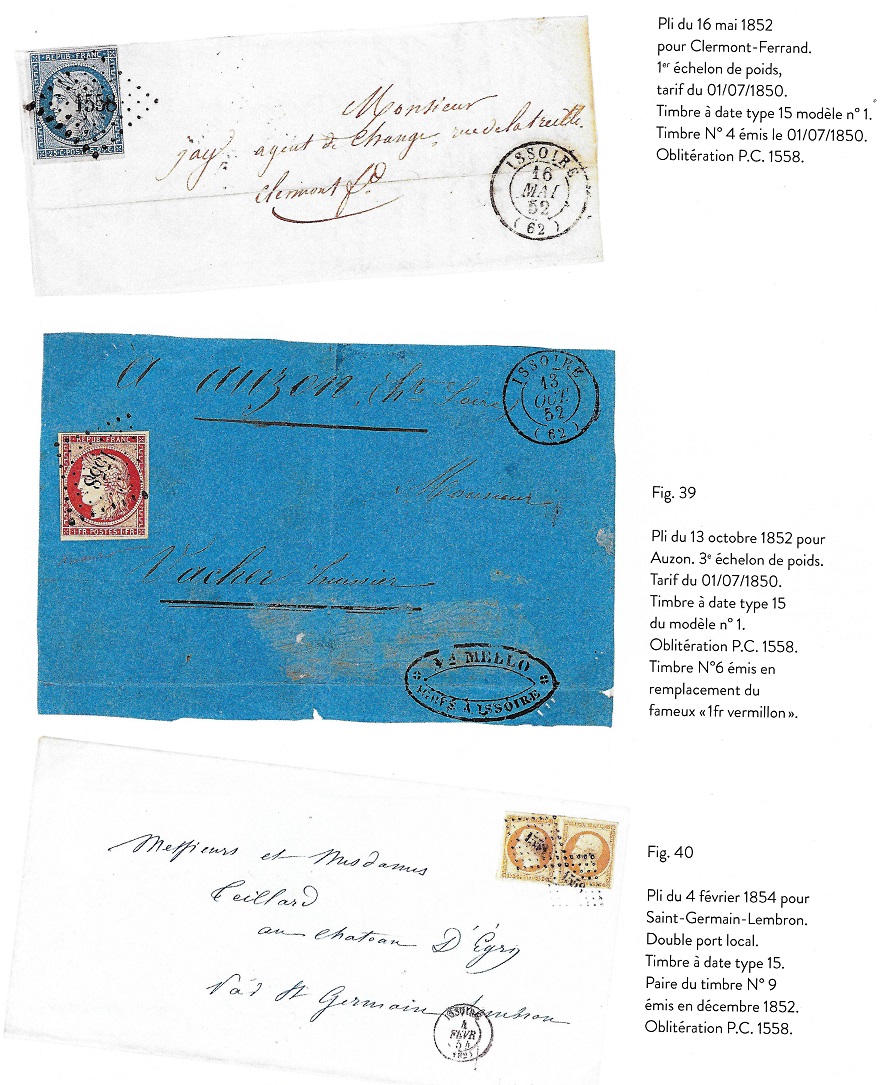 REPUB. FRANC.
1558
25 C. POSTES 25 C.
Monsieur
jay agent de Change, rue de la treille
Clermont fd.
ISSOIRE
16
MAI
52
(62)
Pli du 16 mai 1852
pour Clermont-Ferrand.
1er échelon de poids,
tarif du 01/07/1850.
Timbre à date type 15 modèle n° 1.
Timbre N° 4 émis le 01/07/1850.
Oblitération P.C. 1558.
A auzon, (hte Loire)
ISSOIRE
13
OCT.
52
(62)
REPUB. FRANC.
1558
1 FR. POSTES 1 FR.
Monsieur
Vacher huissier
MELLO
A ISSOIRE
Fig. 39
Pli du 13 octobre 1852 pour
Auzon. 3e échelon de poids.
Tarif du 01/07/1850.
Timbre à date type 15
du modèle n° 1.
Oblitération P.C. 1558.
Timbre N°6 émis en
remplacement du
fameux «1fr vermillon».
1558
1558
Messieurs et Mesdames
Teillard
au chateau D'Égry
St Germain Lembron
ISSOIRE
4
FEVR
54
Fig. 40
Pli du 4 février 1854 pour
Saint-Germain-Lembron.
Double port local.
Timbre à date type 15.
Paire du timbre N° 9
émis en décembre 1852.
Oblitération P.C. 1558.